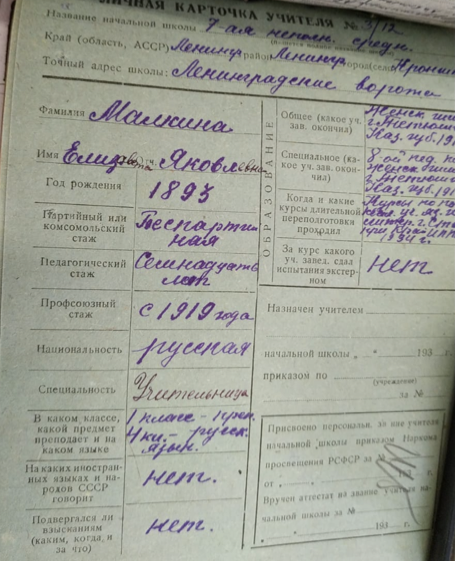 ЛИЧНАЯ КАРТОЧКА УЧИТЕЛЯ № 3/12
Название начальной школы 7-ая неполн. средн.
Край (область, АССР) Ленингр район Ленингр город (село)
Точный адрес школы: Ленинградские ворота
Фамилия Малкина
Имя Елизавета отч. Яковлевна
Год рождения 1893
Партийный или комсомольский стаж Беспартийная
Педагогический стаж Семнадцать лет
Профсоюзный стаж с 1919 года
Национальность русская
Специальность Учительница
В каком классе, какой предмет преподает и на каком языке
1 класс -
4 кл. - русск. язык.
На каких иностранных языках и народов СССР говорит нет.
Подвергался ли взысканиям (каким, когда и за что) нет.
ОБРАЗОВАНИЕ
Общее (какое уч. зав. окончил) Женск.
Каз. губ.
Специальное (какое уч. зав. окончил) 8 ой пед.
Каз. губ.
Когда и какие курсы длительной переподготовки проходил Курсы
1934 г.
За курс какого уч. завед. сдал испытания экстерном нет
Назначен учителем
начальной школы „ “ 193 г.
приказом по
(учреждение)
за №
Присвоено персональн. звание учителя
начальной школы приказом Наркома
просвещения РСФСР за №
от г.
Вручен аттестат на звание учителя начальной школы за №
193 г.